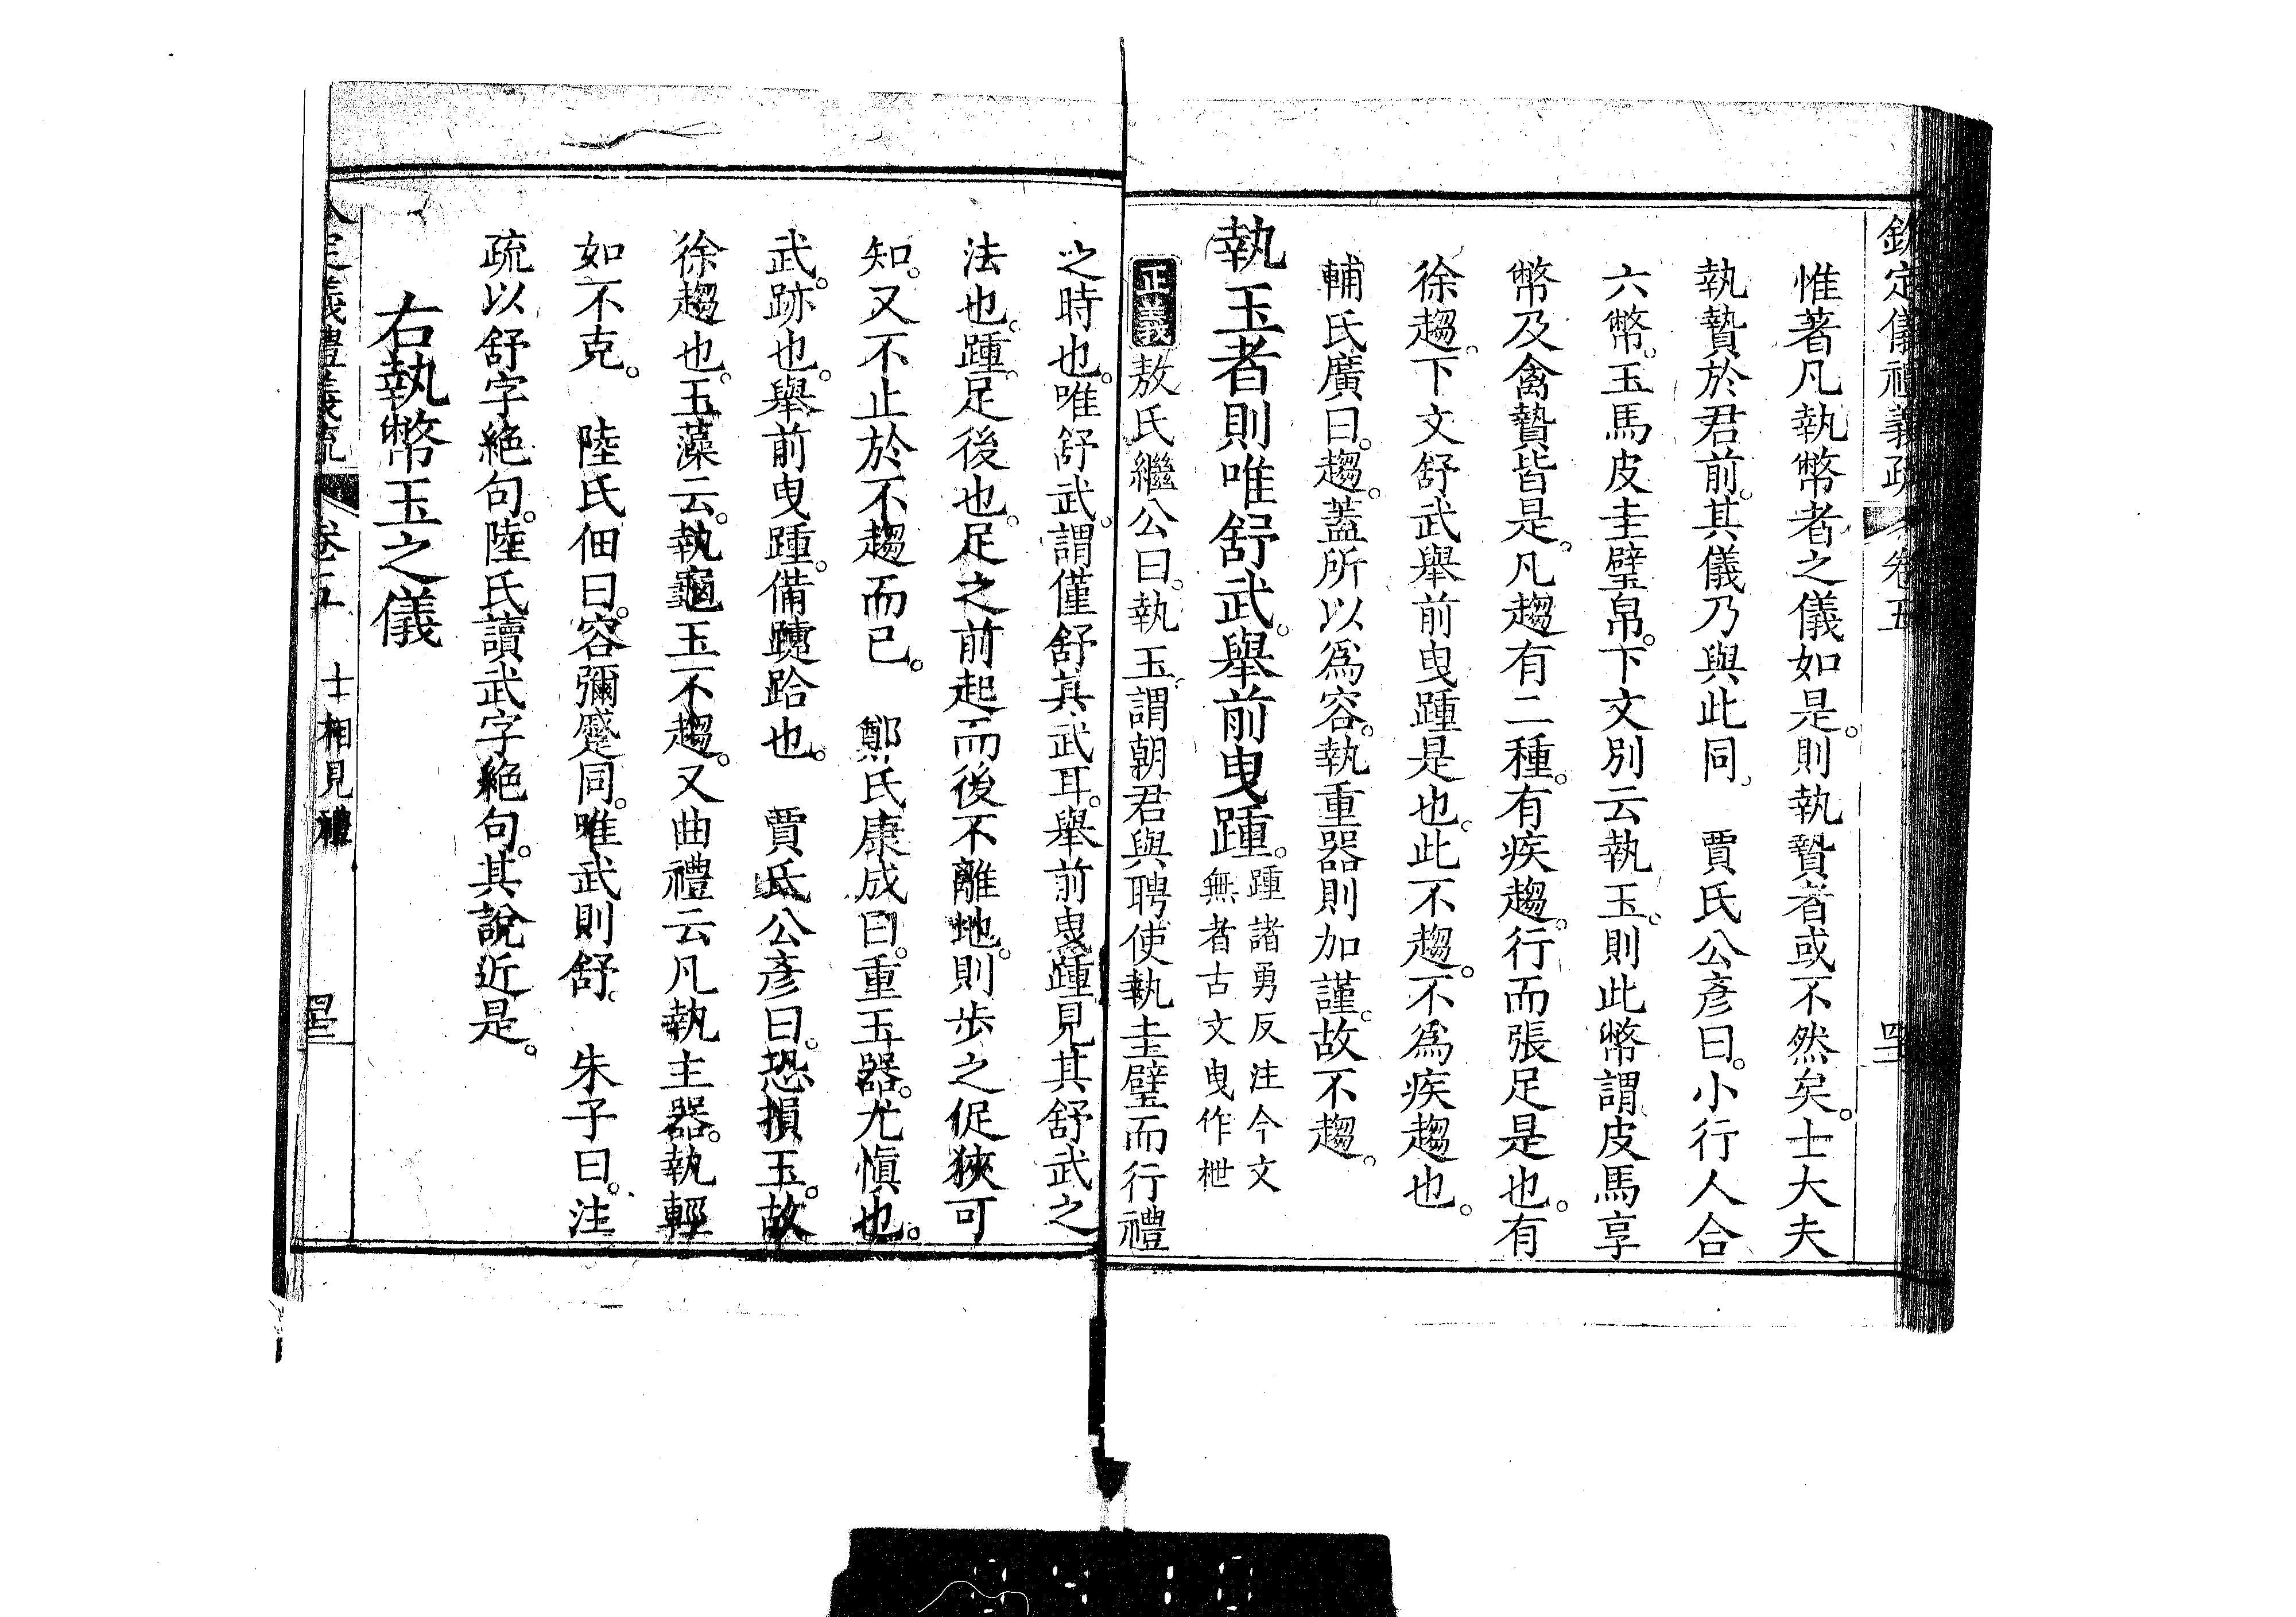 欽定儀禮義疏 卷五
惟著凡執幣者之儀如是。則執贄者或不然矣。士大夫
執贄於君前。其儀乃與此同。 賈氏公彥曰。小行人合
六幣。玉馬皮圭璧帛。下文別云執玉。則此幣謂皮馬享
幣及禽贄皆是。凡趨有二種。有疾趨。行而張足是也。有
徐趨。下文舒武舉前曳踵是也。此不趨。不爲疾趨也。
輔氏廣曰。趨。蓋所以爲容。執重器則加謹。故不趨。
執玉者則唯舒武。舉前曳踵。踵諸勇反注今文
無者古文曳作枻
正義 敖氏繼公曰。執玉。謂朝君與聘使執圭璧而行禮
之時也。唯舒武。謂僅舒其武耳。舉前曳踵見其舒武之
法也。踵。足後也。足之前起而後不離地。則步之促狹可
知。又不止於不趨而已。 鄭氏康成曰。重玉器。尤慎也。
武。跡也。舉前曳踵。備躓跲也。 賈氏公彥曰。恐損玉。故
徐趨也。玉藻云。執龜玉不趨。又曲禮云凡執主器。執輕
如不克。 陸氏佃曰。容彌蹙同。唯武則舒。 朱子曰。注
疏以舒字絶句。陸氏讀武字絶句。其說近是。
右執幣玉之儀
卷五 士相見禮